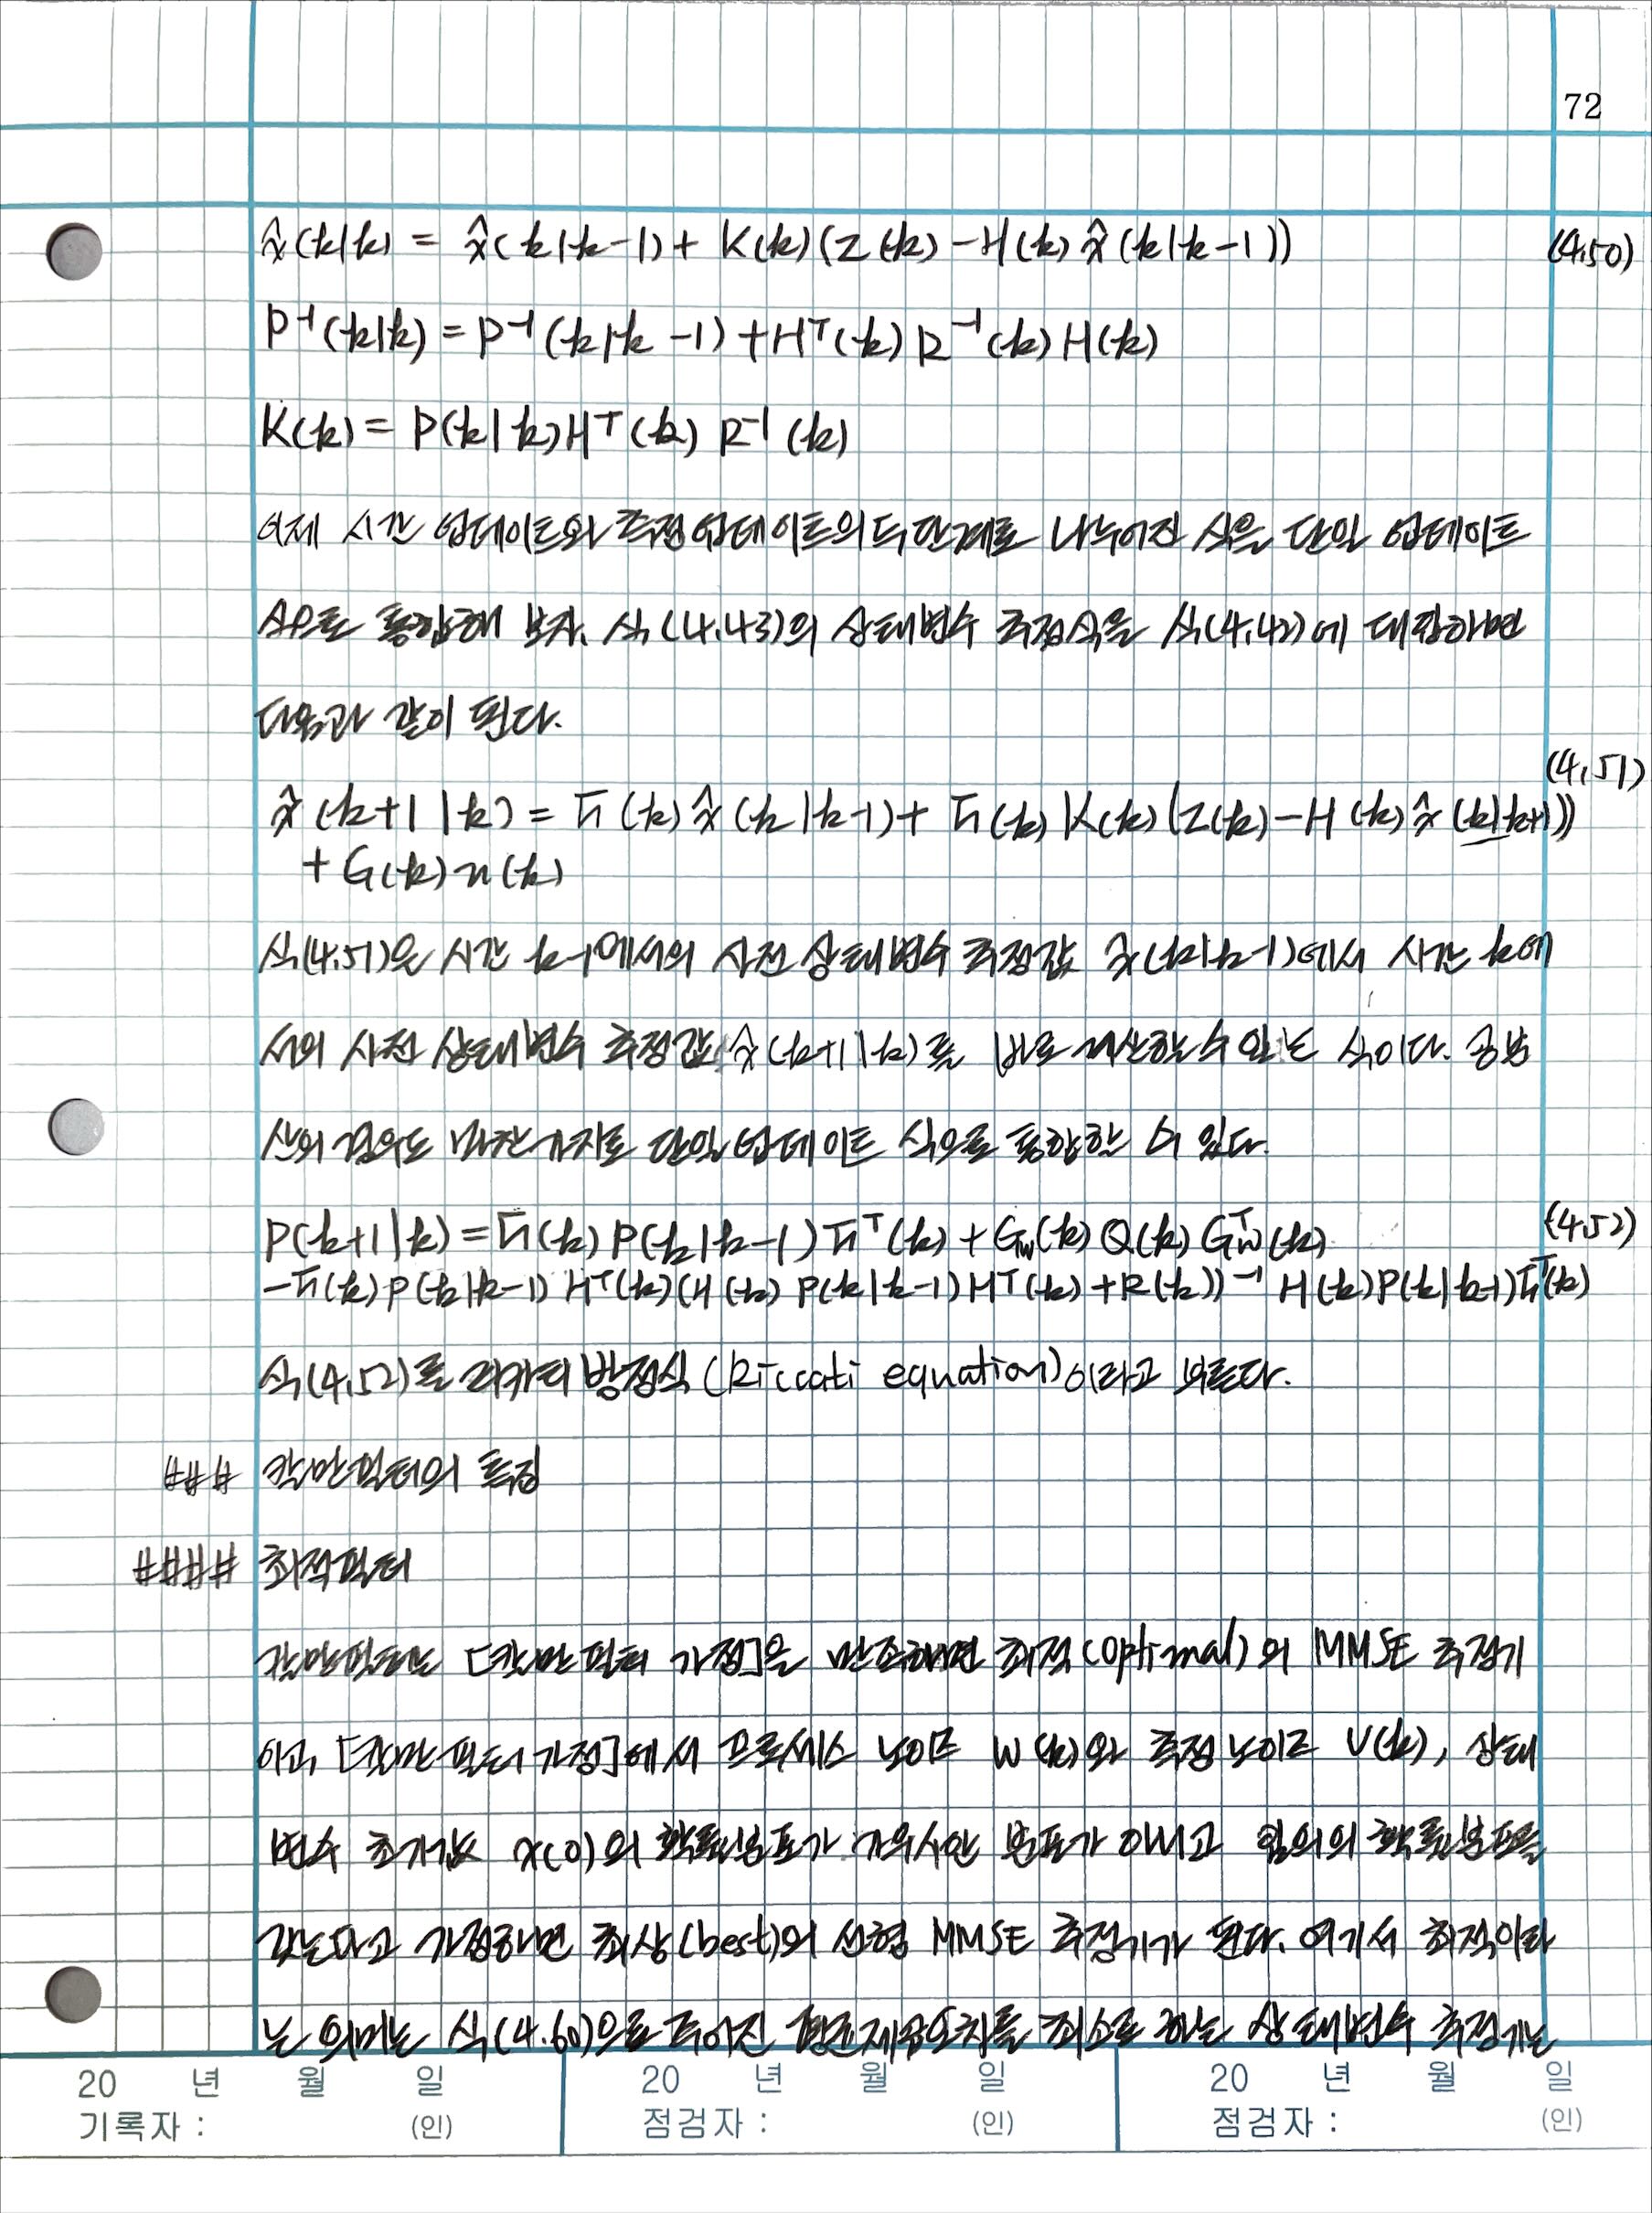 72
x̂(k|k) = x̂(k|k-1) + K(k)(z(k) - H(k) x̂(k|k-1)) (4.50)
P⁻¹(k|k) = P⁻¹(k|k-1) + Hᵀ(k) R⁻¹(k) H(k)
K(k) = P(k|k) Hᵀ(k) R⁻¹(k)
이제 시간 업데이트와 측정 업데이트의 두 단계로 나누어진 식을 단일 업데이트
식으로 통합해 보자. 식(4.43)의 상태변수 추정식을 식(4.42)에 대입하면
다음과 같이 된다.
(4.51)
x̂(k+1|k) = F(k) x̂(k|k-1) + F(k) K(k) (z(k) - H(k) x̂(k|k+1))
+ G(k) u(k)
식(4.51)은 시간 k-1에서의 사전 상태변수 추정값 x̂(k|k-1)에서 시간 k에
서의 사전 상태변수 추정값 x̂(k+1|k)를 바로 계산할 수 있는 식이다. 공분
산의 경우도 마찬가지로 단일 업데이트 식으로 통합할 수 있다.
P(k+1|k) = F(k) P(k|k-1) Fᵀ(k) + Gw(k) Q(k) Gwᵀ(k) (4.52)
- F(k) P(k|k-1) Hᵀ(k) (H(k) P(k|k-1) Hᵀ(k) + R(k))⁻¹ H(k) P(k|k-1) Fᵀ(k)
식(4.52)를 리카티 방정식 (Riccati equation)이라고 부른다.
### 칼만필터의 특징
#### 최적필터
칼만필터는 [칼만필터 가정]을 만족하면 최적(optimal)의 MMSE 추정기
이고, [칼만필터 가정]에서 프로세스 노이즈 w(k)와 측정 노이즈 v(k), 상태
변수 초기값 x(0)의 확률분포가 가우시안 분포가 아니고 임의의 확률분포를
갖는다고 가정하면 최상(best)의 선형 MMSE 추정기가 된다. 여기서 최적이라
는 의미는 식(4.60)으로 주어진 평균제곱오차를 최소로 하는 상태변수 추정기는
20 년 월 일 20 년 월 일 20 년 월 일
기록자 : (인) 점검자 : (인) 점검자 : (인)